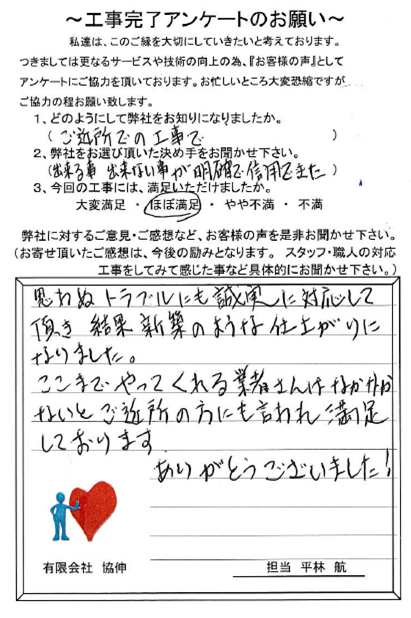 ～工事完了アンケートのお願い～
私達は、このご縁を大切にしていきたいと考えております。
つきましては更なるサービスや技術の向上の為、『お客様の声』として
アンケートにご協力を頂いております。お忙しいところ大変恐縮ですが
ご協力の程お願い致します。
1、どのようにして弊社をお知りになりましたか。
(ご近所での工事で)
2、弊社をお選び頂いた決め手をお聞かせ下さい。
(出来る事 出来ない事が明確で信用できた)
3、今回の工事には、満足いただけましたか。
大変満足 ・ ほぼ満足 ・ やや不満 ・ 不満
弊社に対するご意見・ご感想など、お客様の声を是非お聞かせ下さい。
(お寄せ頂いたご感想は、今後の励みとなります。 スタッフ・職人の対応
工事をしてみて感じた事など具体的にお聞かせ下さい。)
思わぬトラブルにも誠実に対応して
頂き 結果 新築のような仕上がりに
なりました。
ここまでやってくれる業者さんはなかなか
ないとご近所の方にも言われ 満足
しております.
ありがとうございました!
有限会社 協伸
担当 平林 航